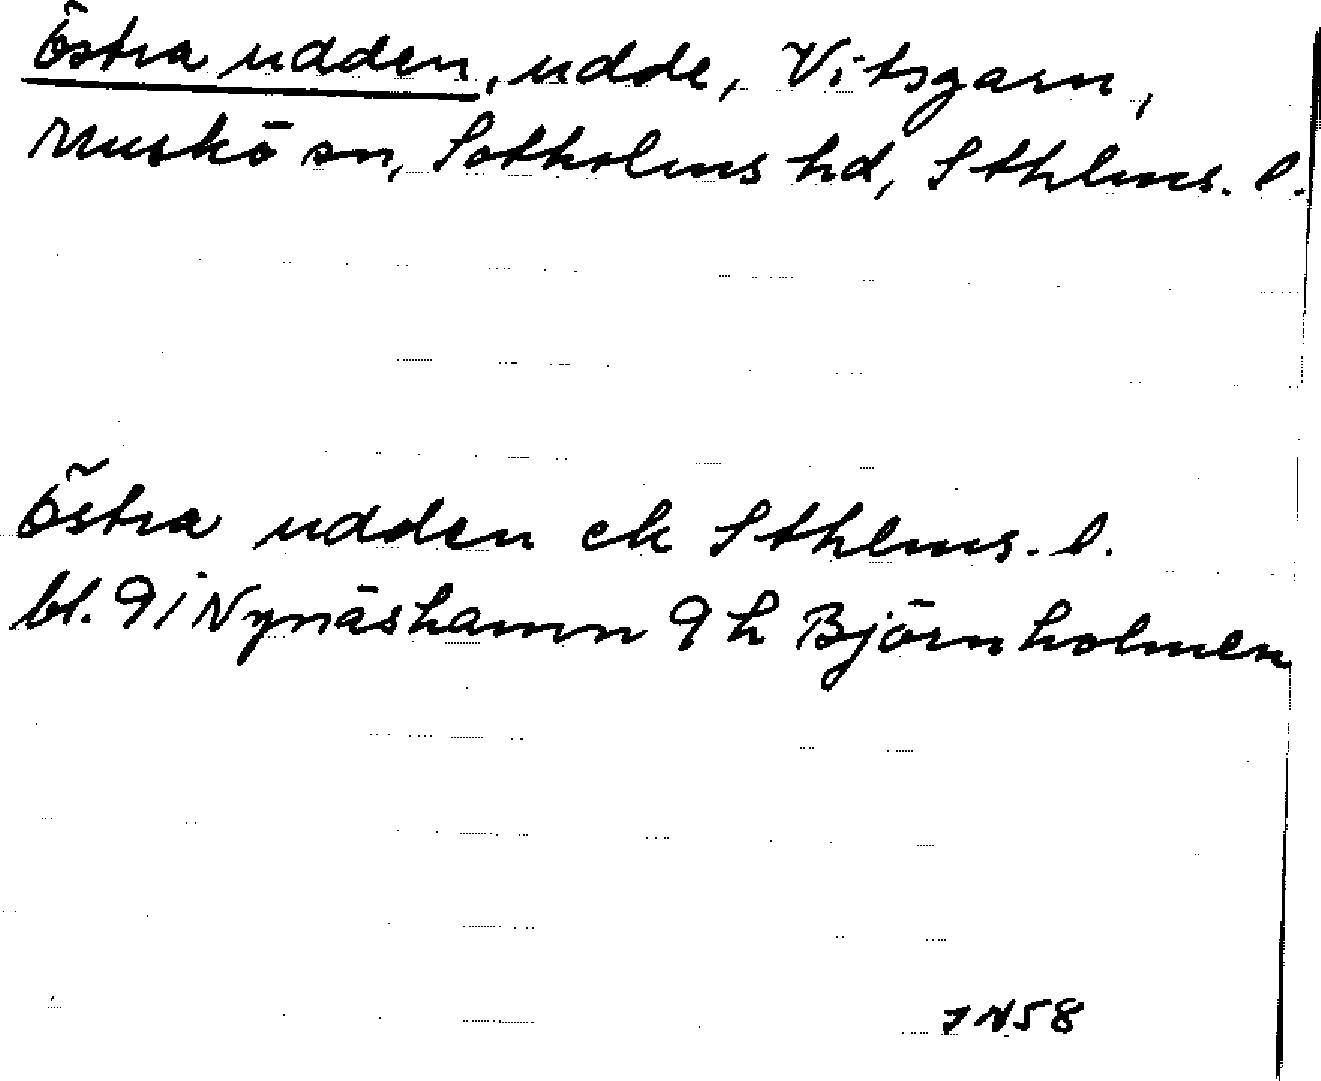 Östra udden, udde, Vitsgarn,
Muskö sn, Sotholms hd, Sthlms. l.
Östra udden ek Sthlms. l.
bl. 9i Nynäshamn 9h Björnholmen
JN58